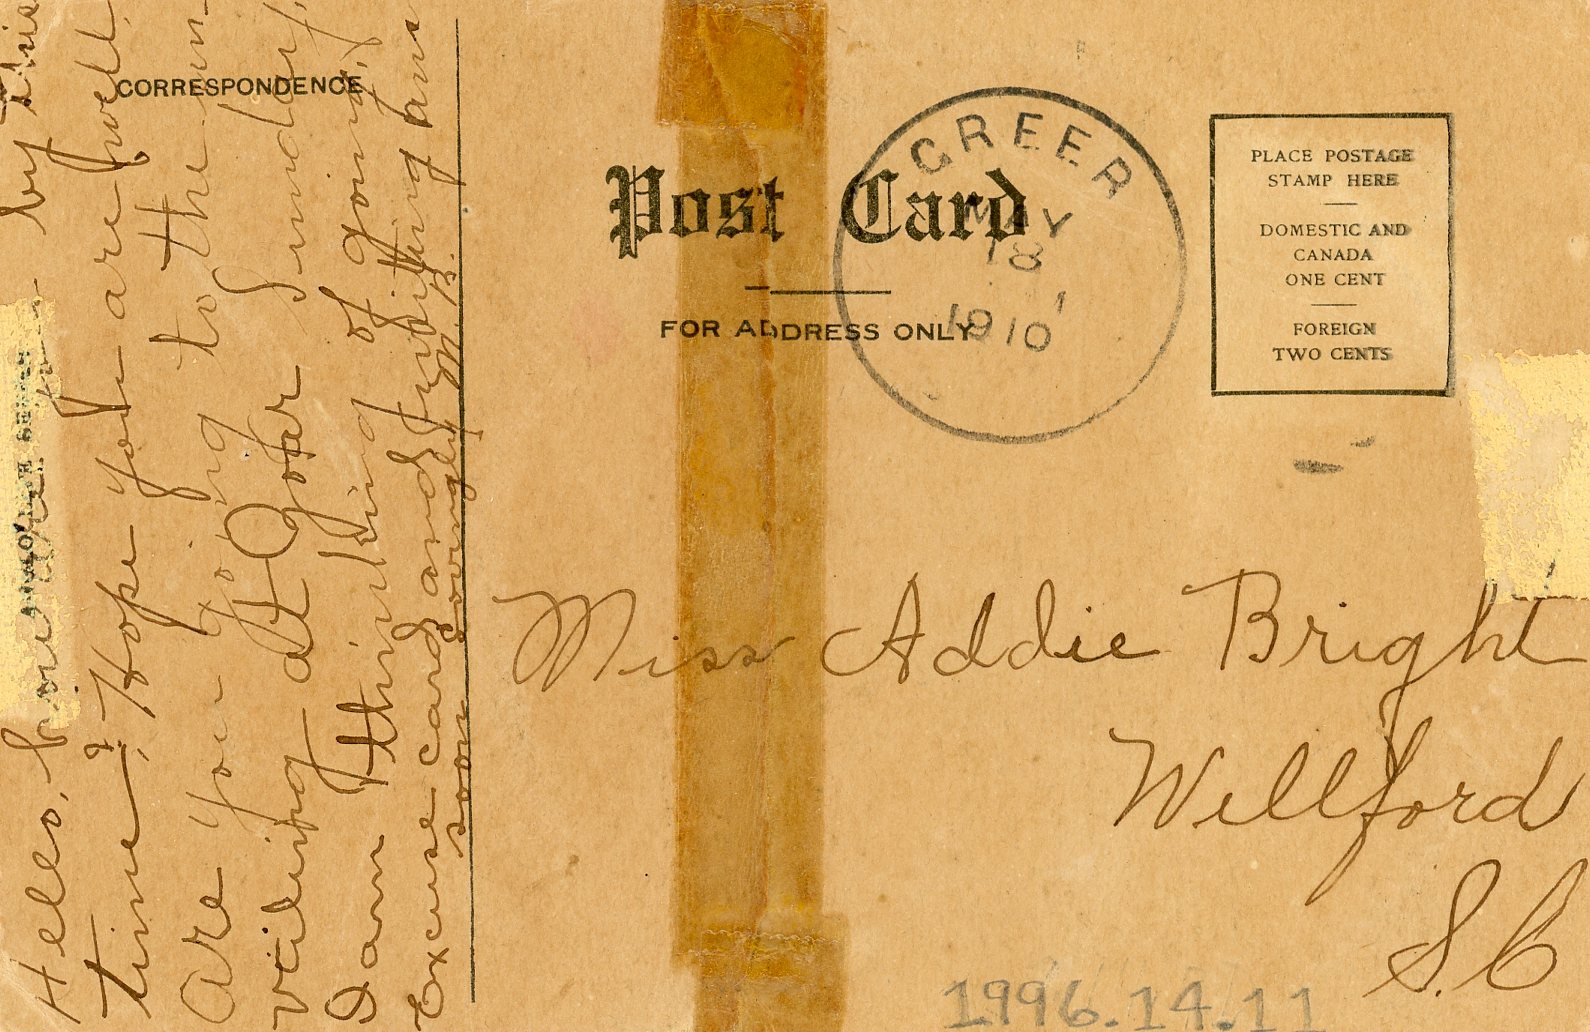 CORRESPONDENCE
Hello, how are you by this
time, Hope you are well.
Are you going to the un-
veiling at Gohr Sunday,
I am thinking of going,
Excuse card and writing ans
soon Lovingly M. B.
Post Card
FOR ADDRESS ONLY
GREER
MAY
18
1910
PLACE POSTAGE
STAMP HERE
DOMESTIC AND
CANADA
ONE CENT
FOREIGN
TWO CENTS
Miss Addie Bright
Wellford
S.C
1996.14.11